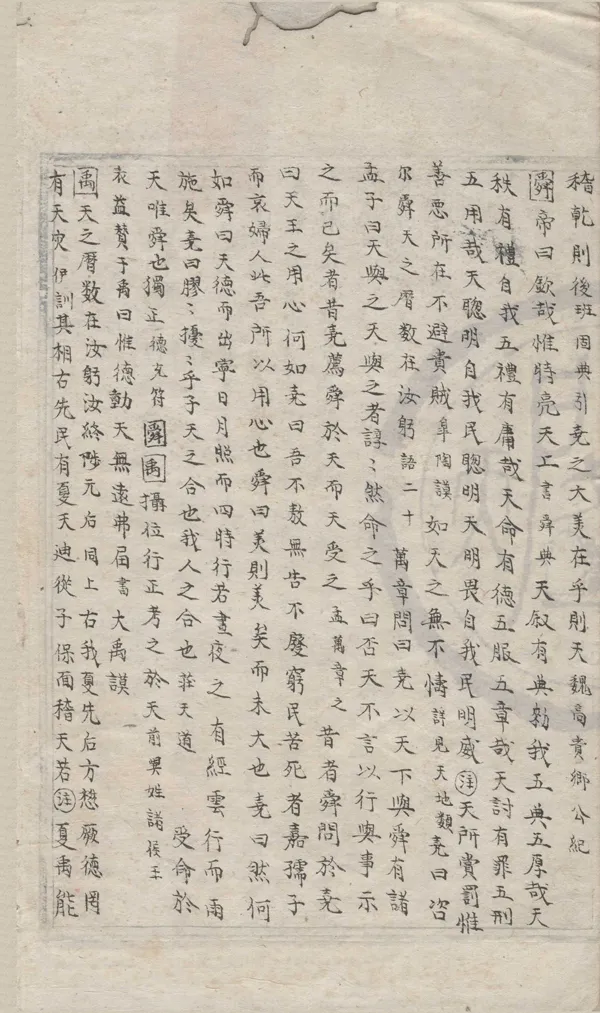 稽乾則後班固典引堯之大美在乎則天魏高貴鄉公紀
舜帝曰欽哉惟時亮天工書舜典天叙有典勑我五典五厚哉天
秩有禮自我五禮有庸哉天命有德五服五章哉天討有罪五刑
五用哉天聰明自我民聰明天明畏自我民明威注天所賞罰惟
善惡所在不避貴賤皐陶謨如天之無不幬詳見天地類堯曰咨
尔舜天之曆数在汝躬語二十萬章問曰堯以天下與舜有諸
孟子曰天與之天與之者諄〻然命之乎曰否天不言以行與事示
之而已矣者昔堯薦舜於天而天受之孟萬章之昔者舜問於堯
曰天王之用心何如堯曰吾不敖無告不廢窮民苦死者嘉孺子
而哀婦人此吾所以用心也舜曰美則美矣而未大也堯曰然何
如舜曰天德而出寧日月照而四時行若晝夜之有經雲行而雨
施矣堯曰膠〻擾〻乎子天之合也我人之合也莊天道受命於
天唯舜也獨正德充符舜禹攝位行正考之於天前異姓諸侯王
表益賛于禹曰惟德動天無遠弗届書大禹謨
禹天之曆数在汝躬汝終陟元后同上古我夏先后方懋厥德罔
有天灾伊訓其相古先民有夏天迪從子保面稽天若注夏禹能